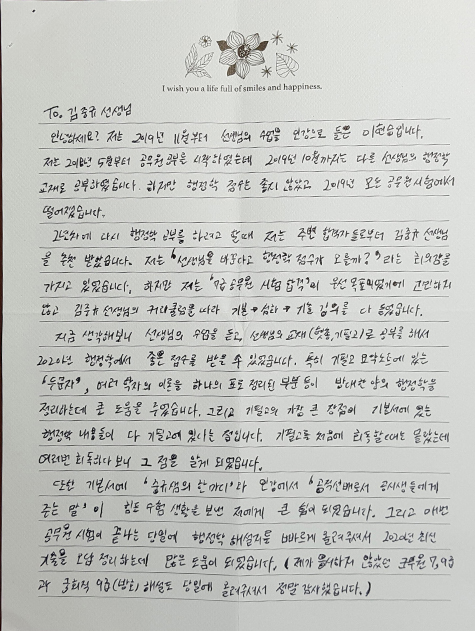 I wish you a life full of smiles and happiness.
To. 김중규 선생님
안녕하세요? 저는 2019년 11월부터 선생님의 수업을 인강으로 들은 이현승입니다.
저는 2018년 5월부터 공무원 공부를 시작하였는데 2019년 10월까지는 다른 선생님의 행정학
교재로 공부하였습니다. 하지만 행정학 점수는 좋지 않았고 2019년 모든 공무원 시험에서
떨어졌습니다.
2년차에 다시 행정학 공부를 하려고 할때 저는 주변 합격자들로부터 김중규 선생님
을 추천 받았습니다. 저는 "선생님을 바꾼다고 행정학 점수가 오를까?" 라는 회의감을
가지고 있었습니다. 하지만 저는 공무원 시험 합격이 우선 목표였기에 고민하지
않고 김중규 선생님의 커리큘럼을 따라 기본→심화→기출 강의를 다 들었습니다.
지금 생각해보니 선생님의 수업을 듣고, 선생님의 교재(기필고)로 공부를 해서
2020년 행정학에서 좋은 점수를 받을 수 있었습니다. 특히 기필고 요약노트에 있는
"두문자", 여러 학자의 이론을 하나의 표로 정리된 부분 등이 방대한 양의 행정학을
정리하는데 큰 도움을 주었습니다. 그리고 기필고의 가장 큰 장점이 기본서에 있는
행정학 내용들이 다 기필고에 있다는 점입니다. 기필고를 처음에 회독할때는 몰랐는데
여러번 회독하다 보니 그 점을 알게 되었습니다.
또한 기본서에 '중규쌤의 한마디'와 인강에서 '공직선배로서 공시생들에게
주는 말'이 힘든 수험 생활을 보낸 저에게 큰 힘이 되었습니다. 그리고 매번
공무원 시험이 끝나는 당일에 행정학 해설지를 빠르게 올려주셔서 2020년 최신
기출을 오답 정리하는데 많은 도움이 되었습니다. (제가 응시하지 않았던 군무원 7,9급
과 국회직 9급(방호) 해설도 당일에 올려주셔서 정말 감사했습니다.)